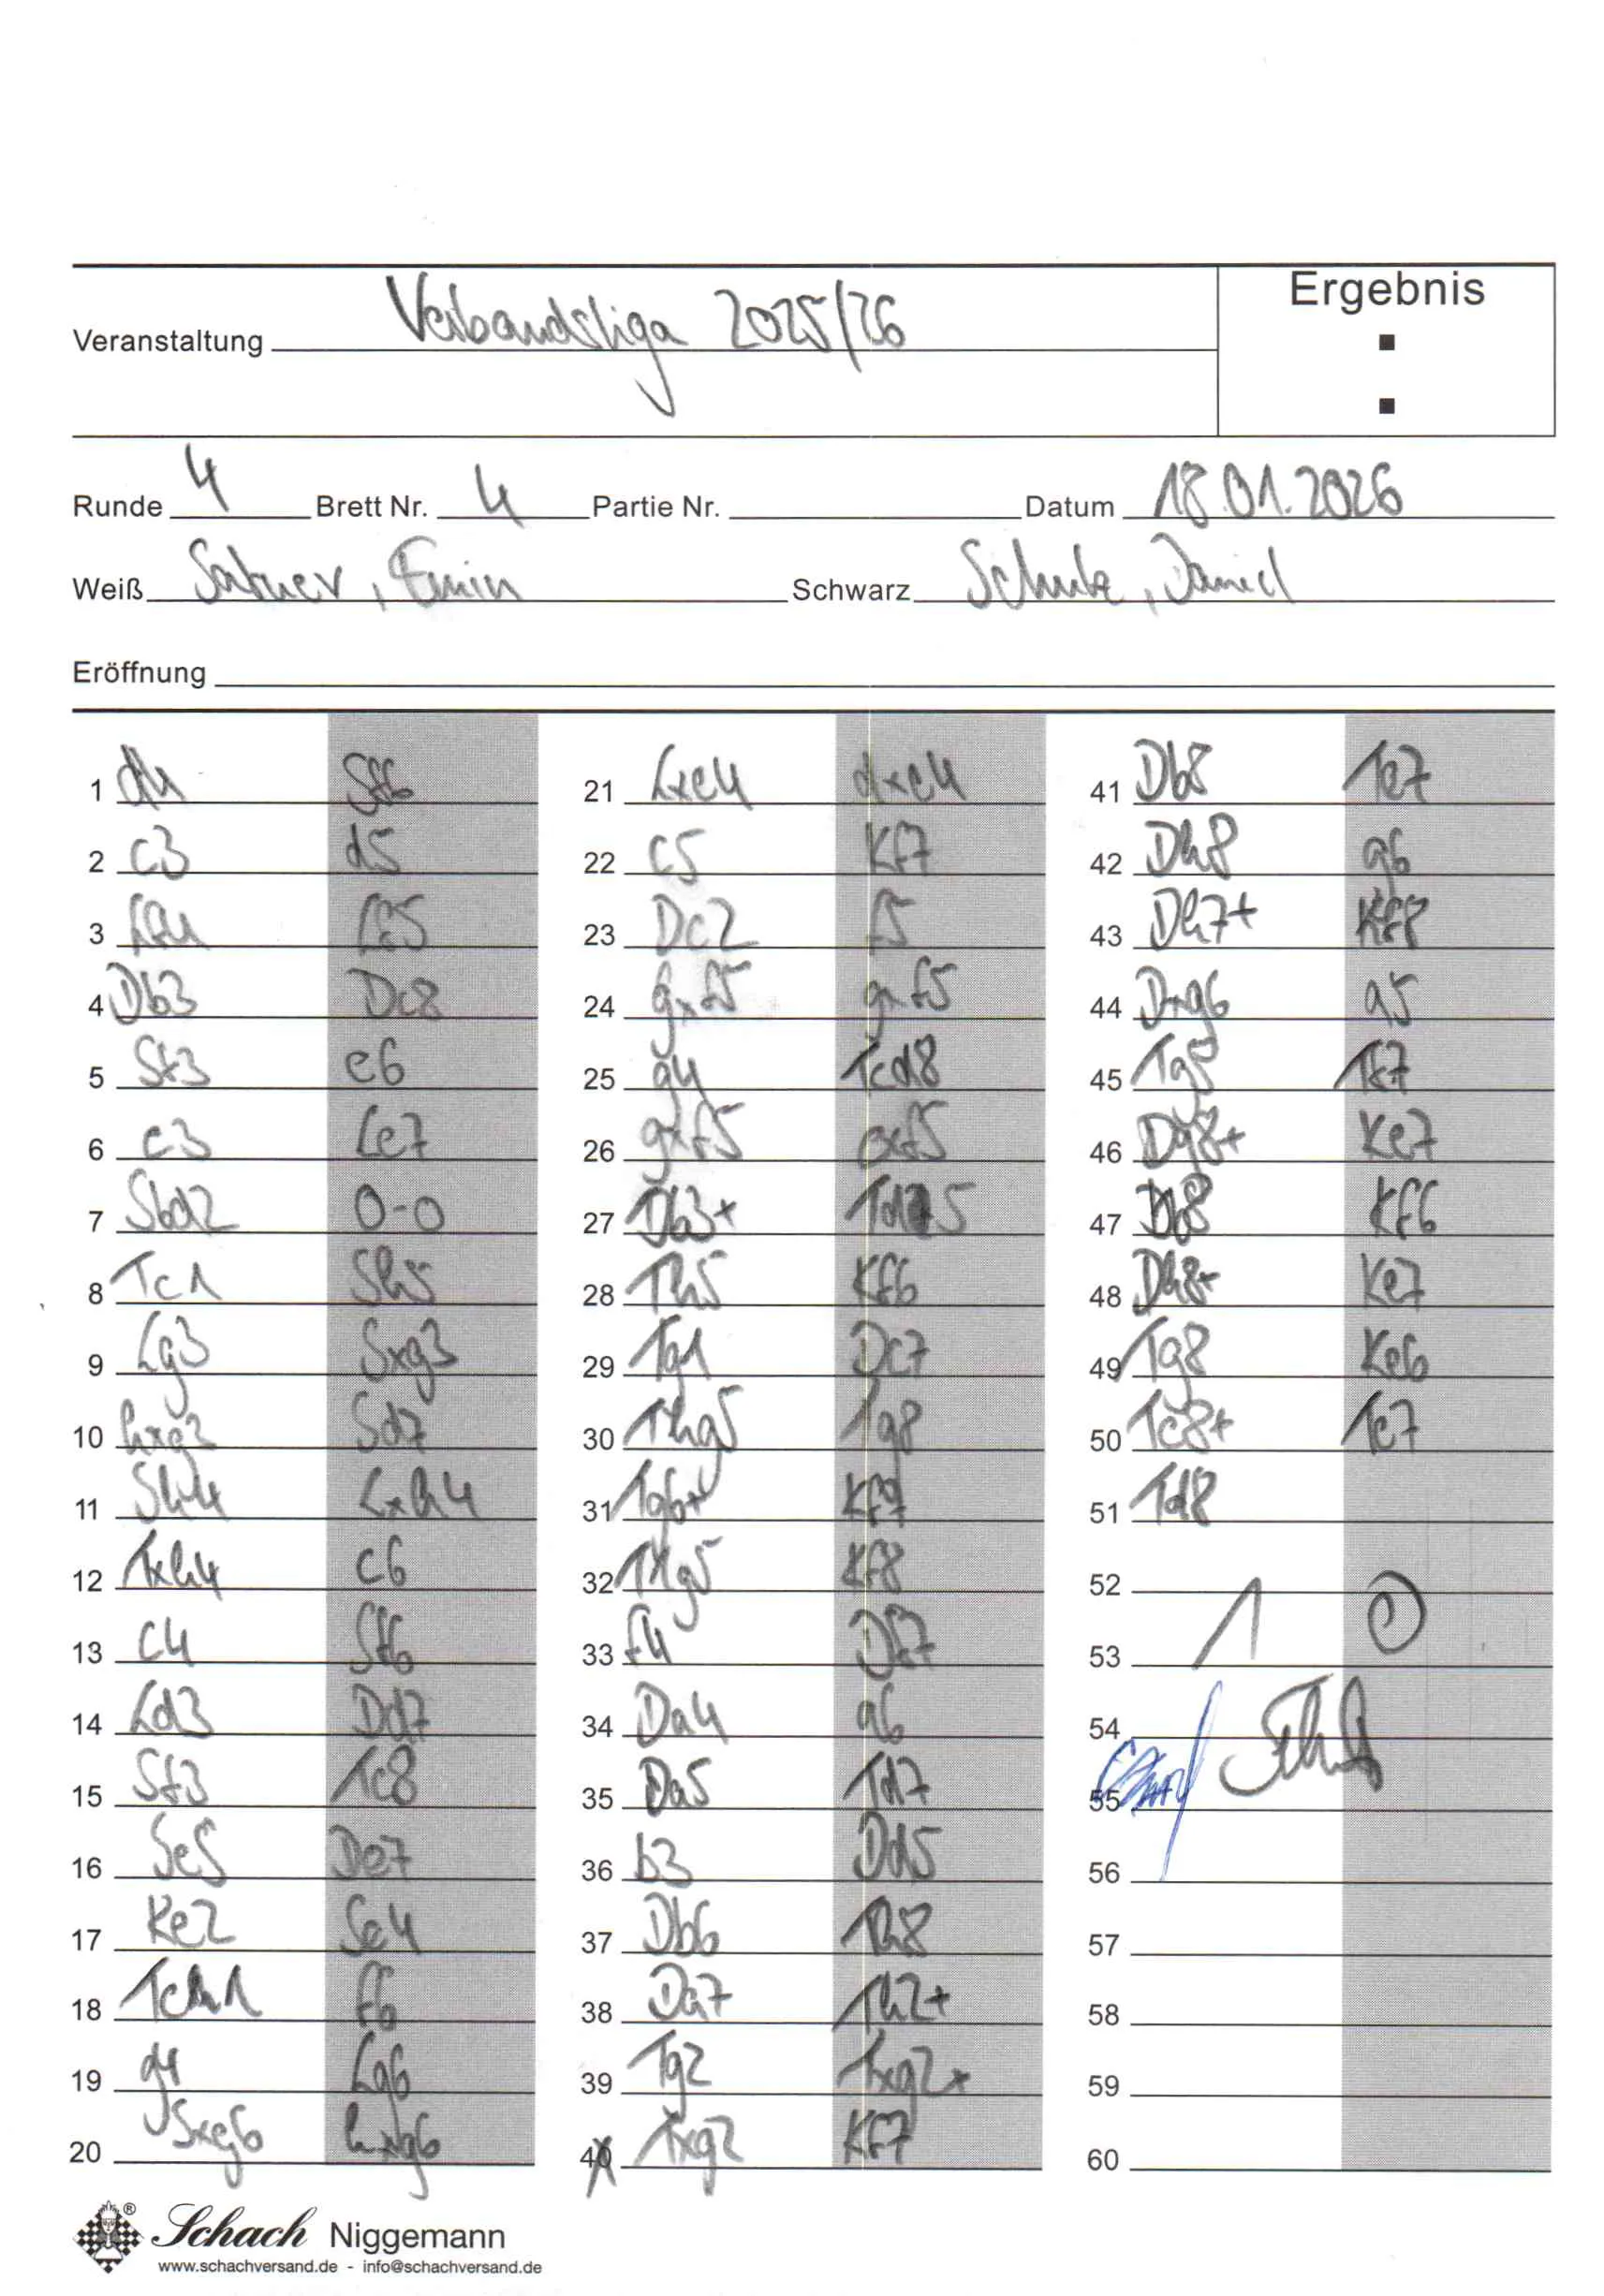 Veranstaltung Verbandsliga 2025/26
Ergebnis
Runde 4 Brett Nr. 4 Partie Nr. Datum 18.01.2026
Weiß , Emin Schwarz , Daniel
Eröffnung
1 d4 Sf6
2 c3 d5
3 Lf4 Lf5
4 Db3 Dc8
5 Sf3 e6
6 e3 Le7
7 Sbd2 0-0
8 Tc1 Sh5
9 Lg3 Sxg3
10 hxg3 Sd7
11 Sh4 Lxh4
12 Txh4 c6
13 c4 Sf6
14 Ld3 Dd7
15 Sf3 Tc8
16 Se5 De7
17 Ke2 Se4
18 Tch1 f6
19 g4 Lg6
20 Sxg6 hxg6
21 Lxe4 dxe4
22 c5 Kf7
23 Dc2 f5
24 gxf5 gxf5
25 g4 Tcd8
26 gxf5 exf5
27 Db3+ Td5
28 Th5 Kf6
29 Tg1 Dc7
30 Thg5 Tg8
31 Tg6+ Kf7
32 T1g5 Kf8
33 f4 Df7
34 Da4 a6
35 Da5 Td7
36 b3 Dd5
37 Db6 Th8
38 Da7 Th2+
39 Tg2 Txg2+
40 Txg2 Kf7
41 Db8 Te7
42 Dh8 g6
43 Dh7+ Kf8
44 Dxg6 a5
45 Tg5 Tf7
46 Dg8+ Ke7
47 Db8 Kf6
48 Dh8+ Ke7
49 Tg8 Ke6
50 Te8+ Te7
51 Td8
52
53 1 0
54
55
56
57
58
59
60
Schach Niggemann
www.schachversand.de - info@schachversand.de